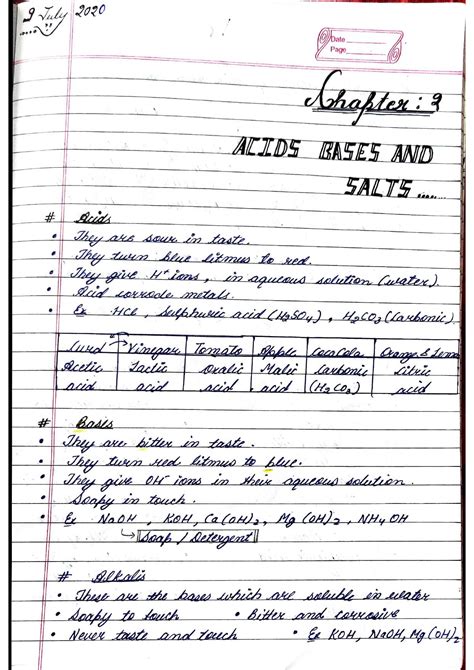 9 July 2020
Date
Page
Chapter : 2
ACIDS BASES AND
SALTS ......
# Acids
• They are sour in taste.
• They turn blue litmus to red.
• They give H+ ions, in aqueous solution (water).
• Acid corrode metals.
• Ex HCl, Sulphuric acid (H2SO4), H2CO3 (Carbonic)
Curd Vinegar Tomato Apple CocaCola Orange & Lemon
Acetic Lactic Oxalic Malic Carbonic Citric
acid acid acid acid (H2CO3) acid
# Bases
• They are bitter in taste.
• They turn red litmus to blue.
• They give OH- ions in their aqueous solution.
• Soapy in touch.
• Ex NaOH, KOH, Ca(OH)2, Mg(OH)2, NH4OH
Soap / Detergent
# Alkalis
• These are the bases which are soluble in water
• Soapy to touch • Bitter and corrosive
• Never taste and touch • Ex KOH, NaOH, Mg(OH)2